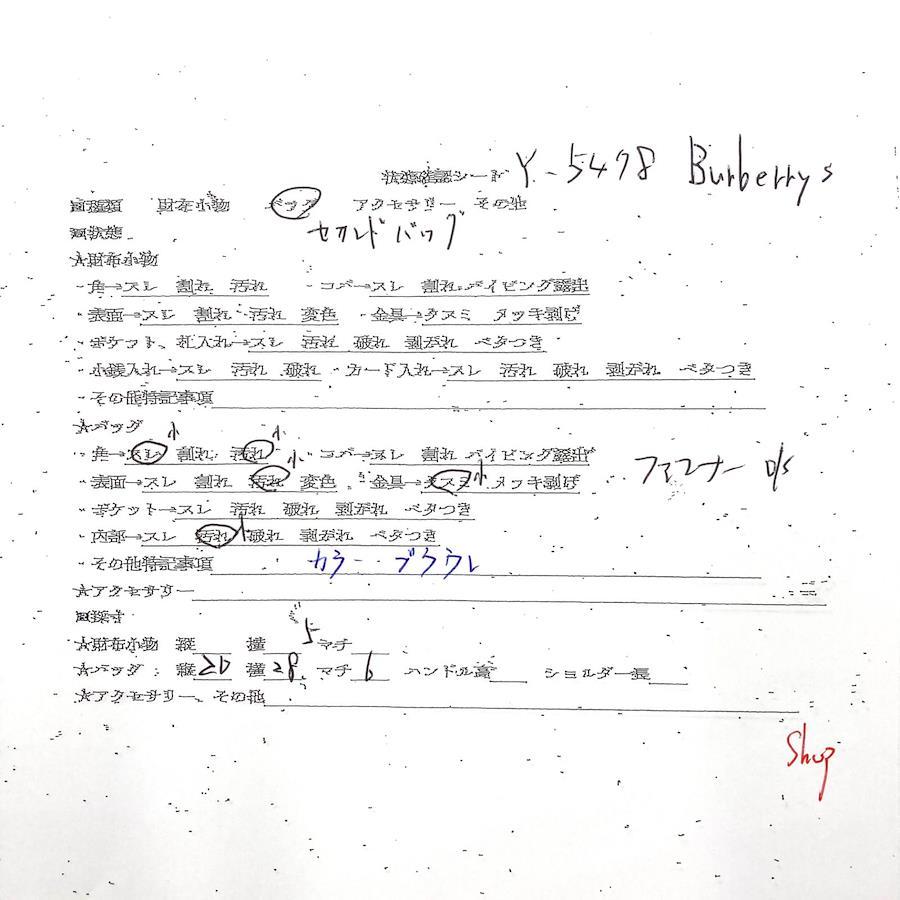 状態確認シート Y-5478 Burberrys
■種類 財布小物 バッグ アクセサリー その他
■状態 セカンドバッグ
★財布小物
・角→スレ 割れ 汚れ ・コバ→スレ 割れ パイピング露出
・表面→スレ 割れ 汚れ 変色 ・金具→クスミ メッキ剥げ
・ポケット、札入れ→スレ 汚れ 破れ 剥がれ ベタつき
・小銭入れ→スレ 汚れ 破れ ・カード入れ→スレ 汚れ 破れ 剥がれ ベタつき
・その他特記事項
★バッグ
・角→スレ小 割れ 汚れ小 ・コバ→スレ 割れ パイピング露出
・表面→スレ 割れ 汚れ小 変色 ・金具→クスミ小 メッキ剥げ ファスナー
・ポケット→スレ 汚れ 破れ 剥がれ ベタつき
・内部→スレ 汚れ小 破れ 剥がれ ベタつき
・その他特記事項 カラー・ブラウン
★アクセサリー
■採寸
★財布小物 縦 横 マチ
★バッグ : 縦20 横28 マチ6 ハンドル高 ショルダー長
★アクセサリー、その他
Shop